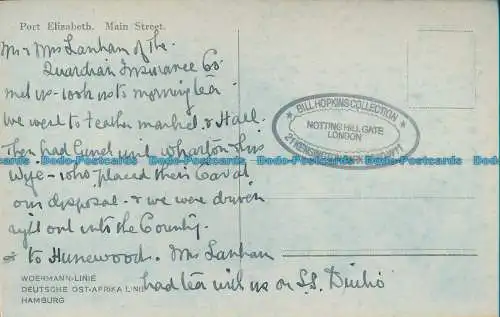 Port Elizabeth. Main Street.
Mr & Mrs Lanham of the
Guardian Insurance Co.
met us - took us to morning tea
we went to Feather market & Hall
Then had lunch with Wharton & his
wife - who placed their Car at
our disposal - & we were driven
right out into the Country
& to Humewood. Mrs Lanham
had tea with us on S.S.
WOERMANN-LINIE
DEUTSCHE OST-AFRIKA LINIE
HAMBURG
BILL HOPKINS COLLECTION
NOTTING HILL GATE
LONDON
21 KENSINGTON PARK
Dodo-Postcards Dodo-Postcards Dodo-Postcards Dodo-Postcards Dodo-Postcards